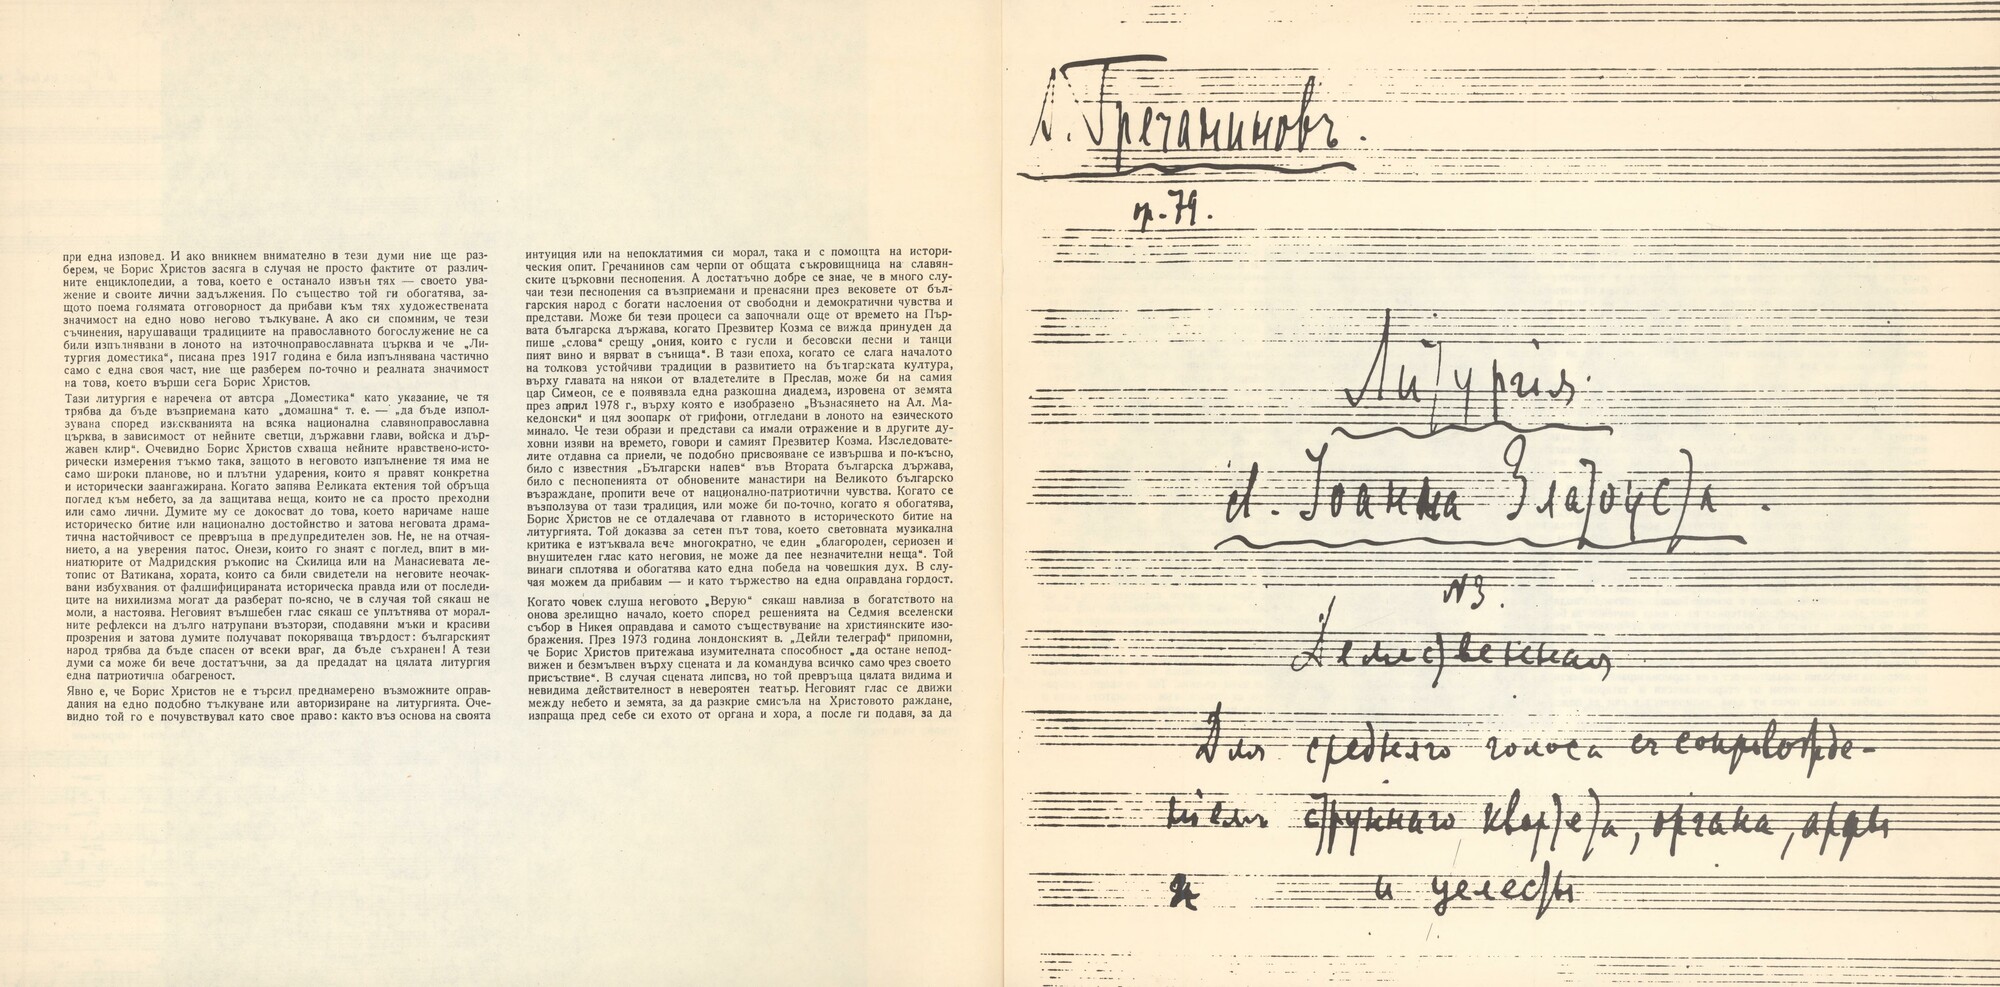 при една изповед. И ако вникнем внимателно в тези думи ние ще раз-
берем, че Борис Христов засяга в случая не просто фактите от различ-
ните енциклопедии, а това, което е останало извън тях — своето ува-
жение и своите лични задължения. По същество той ги обогатява, за-
щото поема голямата отговорност да прибави към тях художествената
значимост на едно ново и негово тълкуване. А ако си спомним, че тези
съчинения, нарушаващи традициите на православното богослужение не са
били изпълнявани в лоното на източноправославната църква и че „Ли-
тургия доместика“, писана през 1917 година е била изпълнявана частично
само с една своя част, ние ще разберем по-точно и реалната значимост
на това, което върши сега Борис Христов.
Тази литургия е наречена от автора „Доместика“ като указание, че тя
трябва да бъде възприемана като „домашна“ т. е. — „да бъде изпол-
зувана според изискванията на всяка национална славяноправославна
църква, в зависимост от нейните светци, държавни глави, войска и дър-
жавен клир“. Очевидно Борис Христов схваща нейните нравствено-исто-
рически измерения тъкмо така, защото в неговото изпълнение тя има не
само широки планове, но и плътни ударения, които я правят конкретна
и исторически заангажирана. Когато запява Великата ектения той обръща
поглед към небето, за да защитава неща, които не са просто преходни
или само лични. Думите му се докосват до това, което наричаме наше
историческо битие или национално достойнство и затова неговата драма-
тична настойчивост се превръща в предупредителен зов. Не, не на отчая-
нието, а на уверения патос. Онези, които го знаят с поглед, впит в ми-
ниатюрите от Мадридския ръкопис на Скилица или на Манасиевата ле-
топис от Ватикана, хората, които са били свидетели на неговите неочак-
вани избухвания от фалшифицираната историческа правда или от последи-
ците на нихилизма могат да разберат по-ясно, че в случая той сякаш не
моли, а настоява. Неговият вълшебен глас сякаш се уплътнява от морал-
ните рефлекси на дълго натрупани възторзи, сподавяни мъки и красиви
прозрения и затова думите получават покоряваща твърдост: българският
народ трябва да бъде спасен от всеки враг, да бъде съхранен! А тези
думи са може би вече достатъчни, за да предадат на цялата литургия
една патриотична обагреност.
Явно е, че Борис Христов не е търсил преднамерено възможните оправ-
дания на едно подобно тълкуване или авторизиране на литургията. Оче-
видно той го е почувствувал като свое право: както въз основа на своята
интуиция или на непоклатимия си морал, така и с помощта на истори-
ческия опит. Гречанинов сам черпи от общата съкровищница на славян-
ските църковни песнопения. А достатъчно добре се знае, че в много слу-
чаи тези песнопения са възприемани и пренасяни през вековете от бъл-
гарския народ с богати наслоения от свободни и демократични чувства и
представи. Може би тези процеси са започнали още от времето на Пър-
вата българска държава, когато Презвитер Козма се вижда принуден да
пише „слова“ срещу „ония, които с гусли и бесовски песни и танци
пият вино и вярват в сънища“. В тази епоха, когато се слага началото
на толкова устойчиви традиции в развитието на българската култура,
върху главата на някои от владетелите в Преслав, може би на самия
цар Симеон, се е появявала една разкошна диадема, изровена от земята
през април 1978 г., върху която е изобразено „Възнасянето на Ал. Ма-
кедонски“ и цял зоопарк от грифони, отгледани в лоното на езическото
минало. Че тези образи и представи са имали отражение и в другите ду-
ховни изяви на времето, говори и самият Презвитер Козма. Изследовате-
лите отдавна са приели, че подобно присвояване се извършва и по-късно,
било с известния „Български напев“ във Втората българска държава,
било с песнопенията от обновените манастири на Великото българско
възраждане, пропити вече от национално-патриотични чувства. Когато се
възползува от тази традиция, или може би по-точно, когато я обогатява,
Борис Христов не се отдалечава от главното в историческото битие на
литургията. Той доказва за сетен път това, което световната музикална
критика е изтъквала вече многократно, че един „благороден, сериозен и
внушителен глас като неговия, не може да пее незначителни неща“. Той
винаги сплотява и обогатява като една победа на човешкия дух. В слу-
чая можем да прибавим — и като тържество на една оправдана гордост.
Когато човек слуша неговото „Верую“ сякаш навлиза в богатството на
онова зрелищно начало, което според решенията на Седмия вселенски
събор в Никея оправдава и самото съществуване на християнските изо-
бражения. През 1973 година лондонският в. „Дейли телеграф“ припомни,
че Борис Христов притежава изумителната способност „да остане непод-
вижен и безмълвен върху сцената и да командува всичко само чрез своето
присъствие“. В случая сцената липсва, но той превръща цялата видима и
невидима действителност в невероятен театър. Неговият глас се движи
между небето и земята, за да разкрие смисъла на Христовото раждане,
изпраща пред себе си ехото от органа и хора, а после ги подавя, за да
А. Гречаниновъ.
op. 79.
Литургія
св. Іоанна Златоуста.
№3.
Демественная
Для средняго голоса съ сопровожде-
ніемъ струннаго квартета, органа, арфы
и челесты